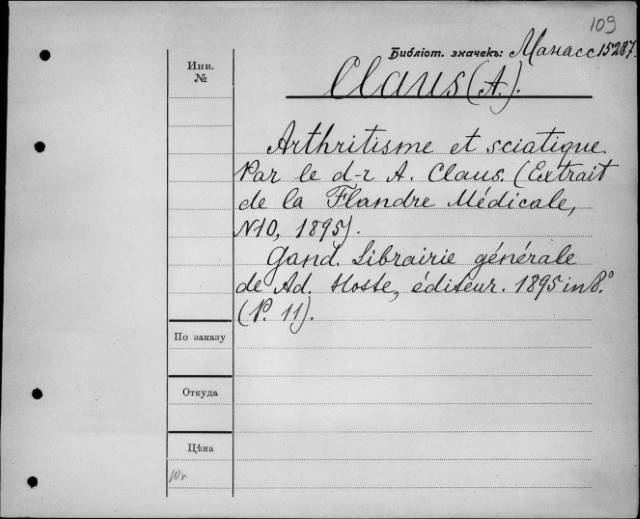 109
Библіот. значекъ: Манасс. 15287.
Инв.
№
Claus (A.).
Arthritisme et sciatique.
Par le d-r A. Claus. (Extrait
de la Flandre Médicale,
N10, 1895).
Gand. Librairie générale
de Ad. Hoste, éditeur. 1895 in 8.°
(P. 11).
По заказу
Откуда
Цѣна